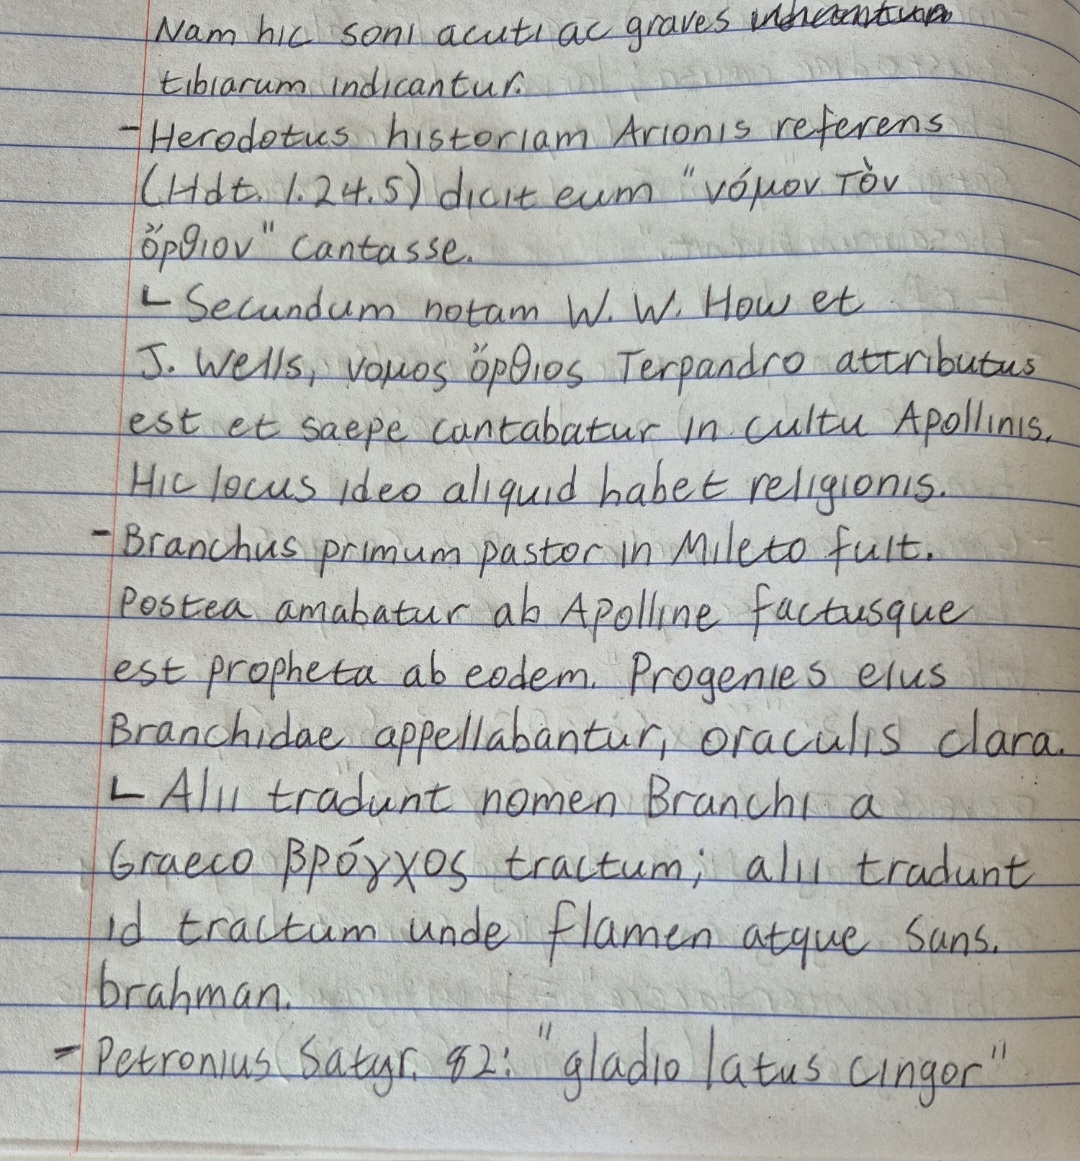 Nam hic soni acuti ac graves
tibiarum indicantur.
- Herodotus historiam Arionis referens
(Hdt. 1.24.5) dicit eum "νόμον τὸν
ὄρθιον" cantasse.
└ Secundum notam W. W. How et
J. Wells, νομος ὄρθιος Terpandro attributus
est et saepe cantabatur in cultu Apollinis.
Hic locus ideo aliquid habet religionis.
- Branchus primum pastor in Mileto fuit.
Postea amabatur ab Apolline factusque
est propheta ab eodem. Progenies eius
Branchidae appellabantur, oraculis clara.
└ Alii tradunt nomen Branchi a
Graeco βρόγχος tractum; alii tradunt
id tractum unde flamen atque Sans.
brahman.
- Petronius Satyr. 82: "gladio latus cingor"